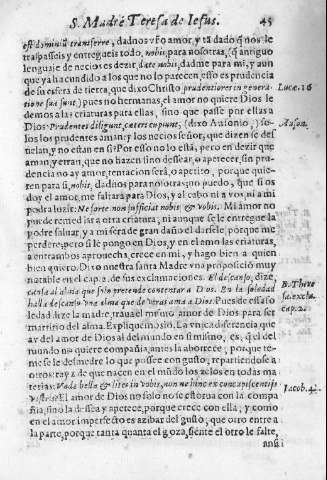 S. Madre Teresa de Iesus. 45
est dominiũ transferre, dadnos vro amor, y tã dado q̃ nos le
traspasseis y entregueis todo, nobis, para nosotras, q̃ antiguo
lenguaje de necios es dezir, date nobis, dadme para mi, y aun
que ya ha cundido a los que no lo parecen, esso es prudencia
de su esfera de tierra, que dixo Christo prudentiores in genera- Luca. 16
tione sua sunt) pues no hermanas, el amor no quiere Dios le
demos a las criaturas para ellas, sino que passe por ellas a
Dios: Prudentes diligunt, cæteri cupiunt, (dixo Ausonio,) so- Auson.
los los prudentes aman; y los necios señor, que dizen se des
uelan, y no estan en si? Por esso no lo està, pero en dezir que
aman yerran, que no hazen sino dessear, o apetecer, sin pru-
dencia no ay amor, tentacion serà, o apetito, porque quie-
ren para si, nobis, dadnos para nosotras; no puedo, que si os
doy el amor, me faltarà para Dios, y al cabo ni a vos, ni a mi
podra luzir: Ne forte non sufficiat nobis & vobis. Mi amor no
puede remediar a otra criatura, ni aunque se le entregue la
podre saluar, y a mi serà de gran daño el darsele, porque me
perdere; pero si le pongo en Dios, y en el amo las criaturas,
a entrambos aprouecha, crece en mi, y hago bien a quien
bien quiero. Dixo nuestra santa Madre vna proposiciõ muy
notable en el cap. 2. de sus exclamaciones. El descanso, dize,
cansa al alma que solo pretende contentar a Dios. En la soledad B. There
halla descanso vna alma que de veras ama a Dios. Pues de essa so sa. excla.
ledad dize la madre, traua el mismo amor de Dios para ser cap. 2.
martirio del alma. Expliquemoslo. La vnica diferencia que
ay del amor de Dios al del mundo en si mismo, es, q̃ el del
mundo no quiere compañia, antes la aborrece, porque te-
me se le desmedre lo que possee con gusto, repartiendose a
otros: ray z de que nacen en el mũdo los zelos en todas ma
terias: Vnde bella & lites in vobis, non ne hinc ex concupiscentijs Jacob. 4.
vestris? El amor de Dios no solo no se estorua con la compa
ñia, sino la dessea y apetece, porque crece con ella; y como
en el amor imperfecto es azibar del gusto, que otro entre a
la parte, porque tanta quanta el goza, siente el otro le falte,
ansi